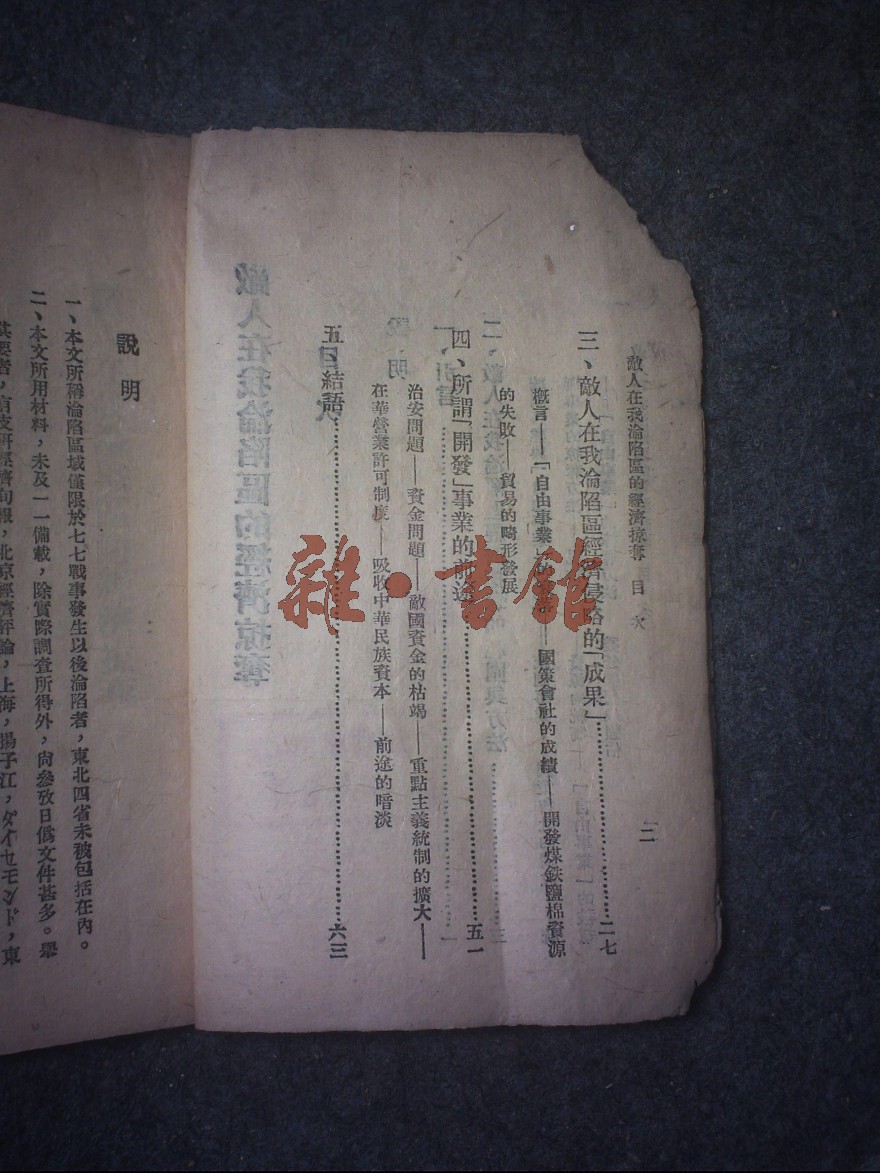 敵人在我淪陷區的經濟掠奪 目次
二
三、敵人在我淪陷區經濟侵略的「成果」……二七
概言——「自由事業」的——國策會社的成績——開發煤鉄鹽棉資源
的失敗——貿易的畸形發展
四、所謂「開發」事業的前途……五一
治安問題——資金問題——敵國資金的枯竭——重點主義統制的擴大——
在華營業許可制度——吸收中華民族資本——前途的暗淡
五、結語……六三
敵人在我淪陷區的經濟掠奪
說明
一、本文所稱淪陷區域僅限於七七戰事發生以後淪陷者，東北四省未被包括在內。
二、本文所用材料，未及一一備載，除實際調查所得外，向參攷日僞文件甚多。舉
其要者，有支研經濟旬報，北京經濟評論，上海，揚子江，ダイヤモンド，東
雜·書館